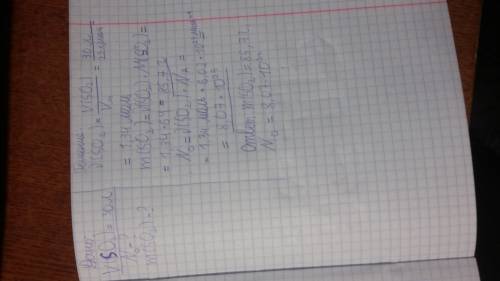 Дано:
V(SO₂) = 30 л
N₀ - ?
m(SO₂) = ?
Решение
ν(SO₂) = V(SO₂) / Vₘ = 30 л /
= 1.34 моль
m(SO₂) = ν(SO₂) · M(SO₂) =
= 1.34 · 64 = 85,7 г
N₀ = ν(SO₂) · Nₐ =
= 1.34 моль · 6.02 · 10²³ моль⁻¹
= 8,07 · 10²³
Ответ: m(SO₂) = 85,7 г,
N₀ = 8,07 · 10²³